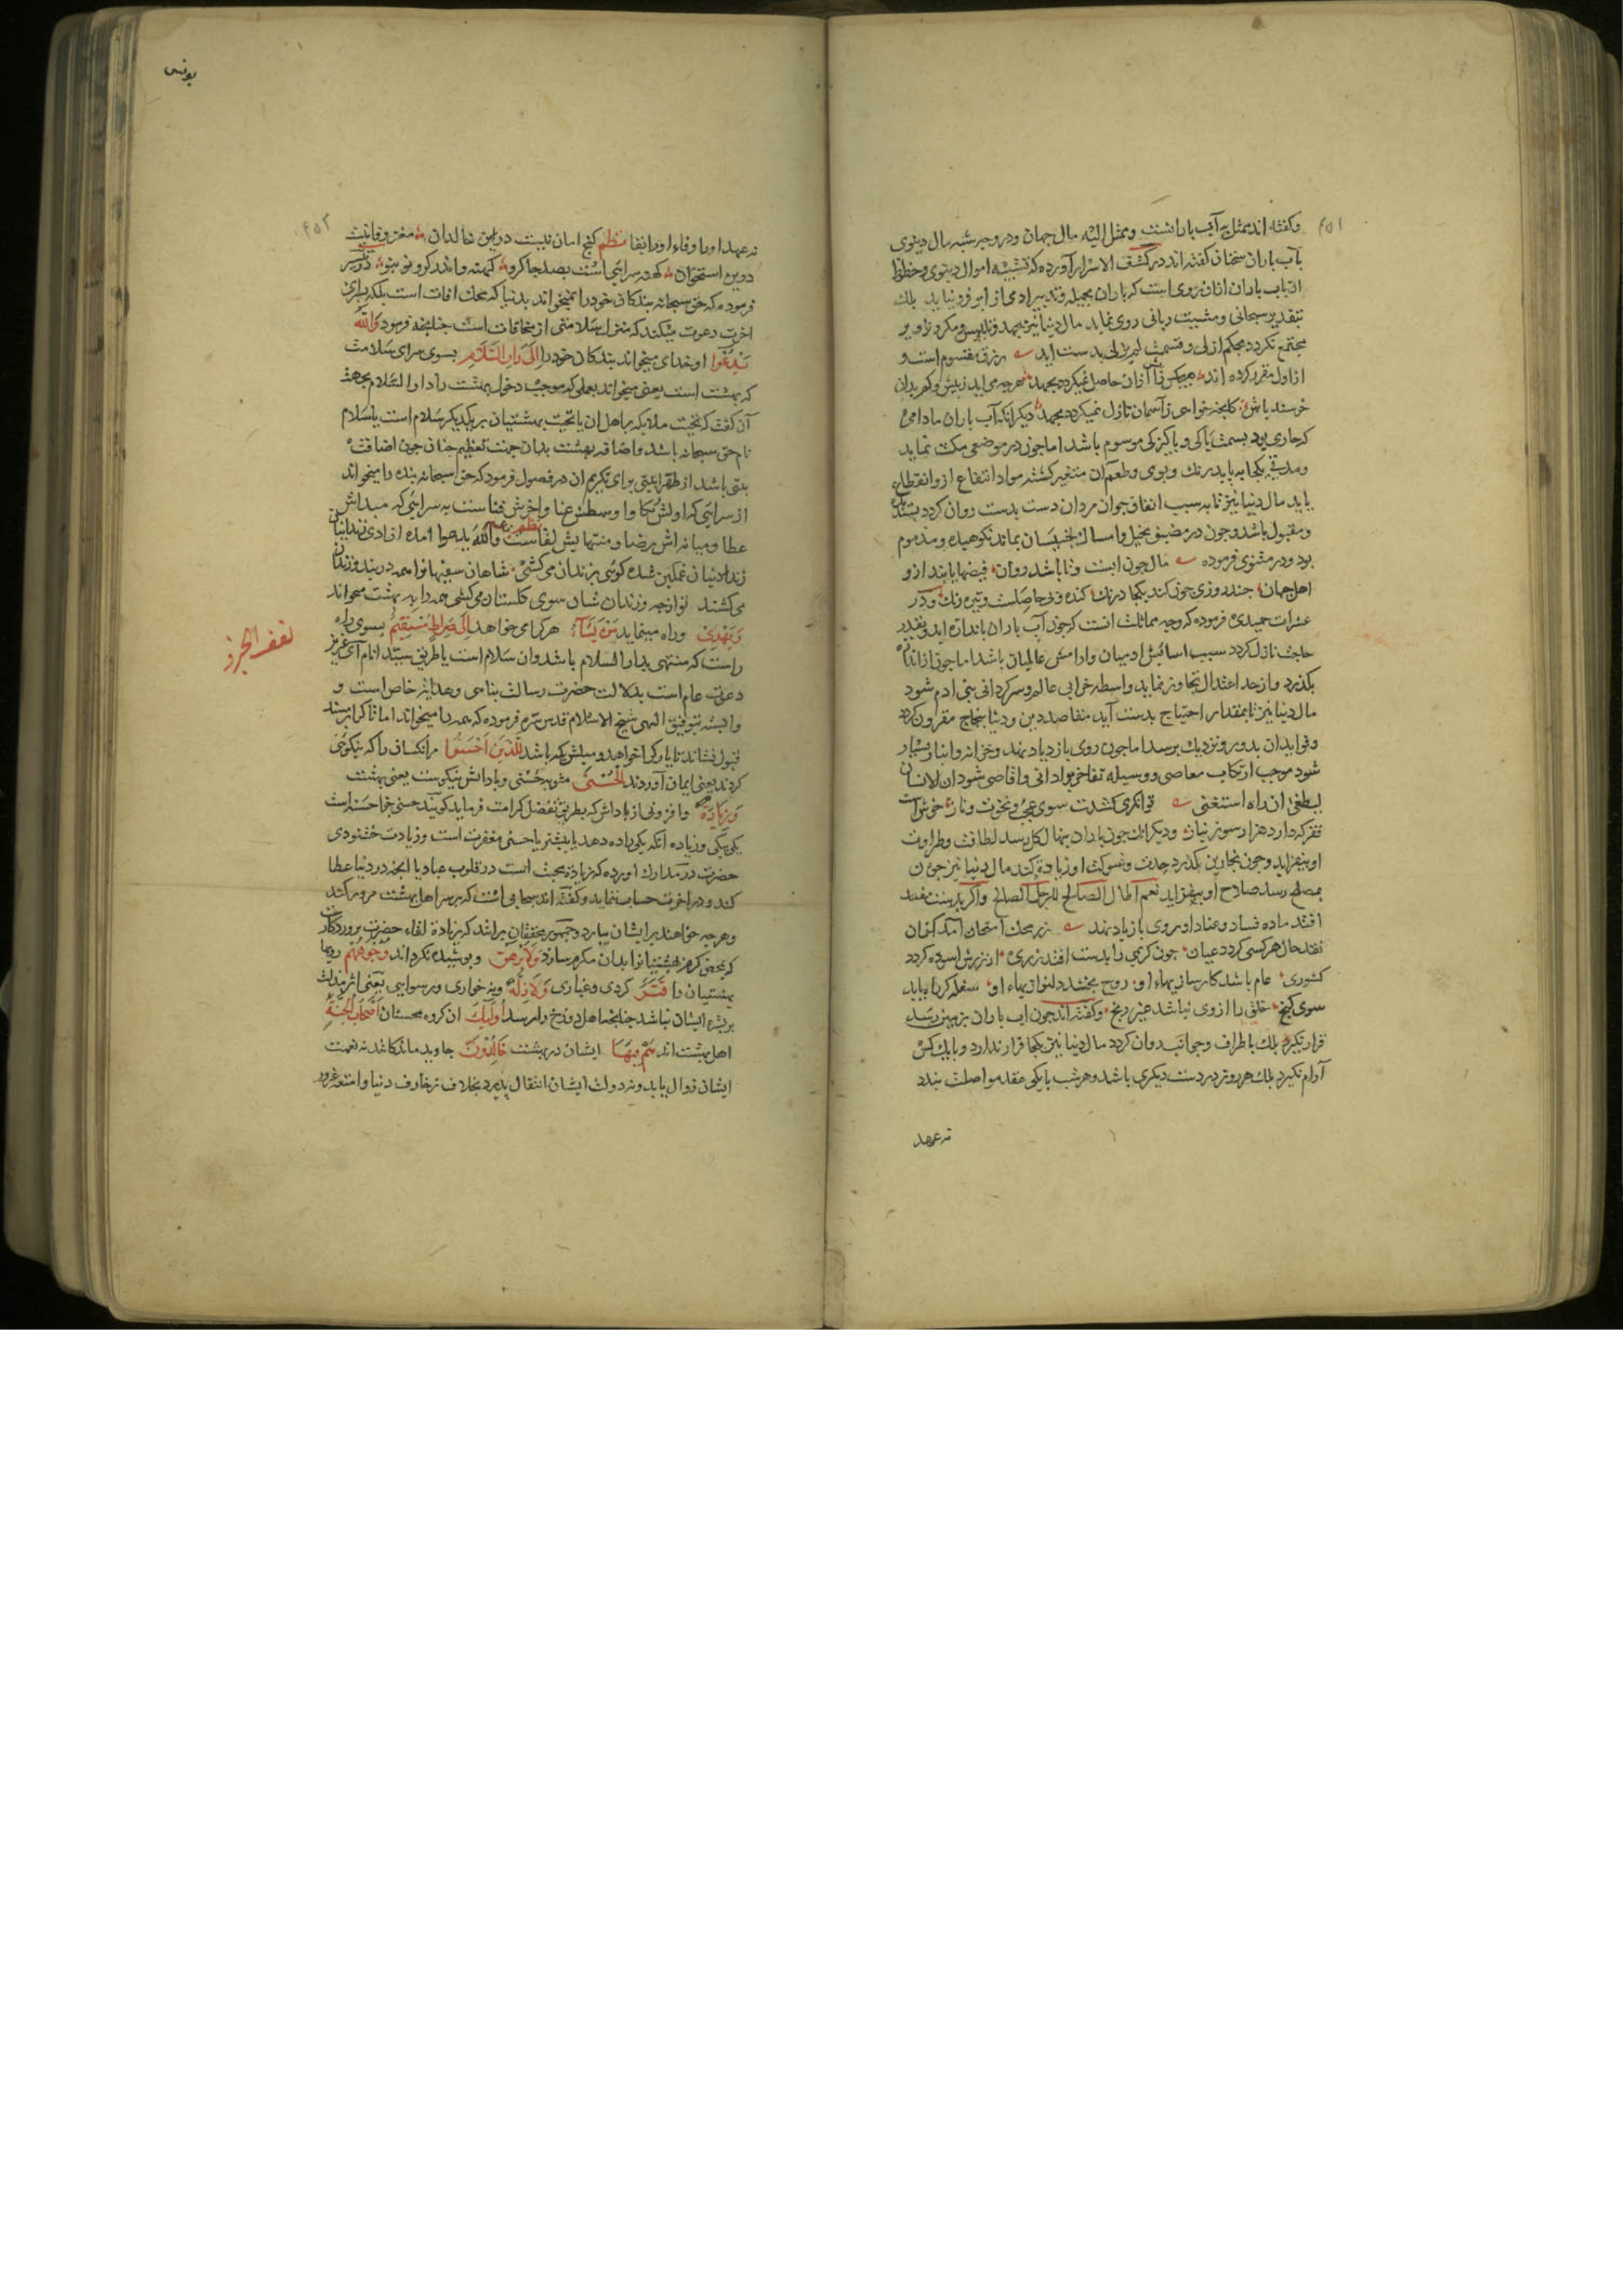 ۴۵۱
وکفته اند ممثل به آب بارانست وممثل الیه مال جهان ودر وجه شبه مال دنیوی
بآب باران سخنان کفته اند در کشف الاسرار آورده که تشبیه اموال دنیوی وحظوظ
ان بآب باران ازان روی است که باران بحیله وتدبیر ادمی از ابر فرو نیاید بلک
بتقدیر سبحانی ومشیت ربانی روی نماید مال دنیا نیز بجهد وتلبیس ومکر وتزویر
مجتمع نکردد بحکم ازلی وقسمت لم یزلی بدست اید رزق مقسوم است و
از اول مقرر کرده اند هیچکس آزان حاصل نمیکردد بجهد هرچه می اید زبیش وکم بدان
خرسند باش کانچه خواهی زآسمان نازل نمیکردد بجهد دیکر انکه آب باران مادامی
که جاری بود بسمت پاکی وپاکیزکی موسوم باشد اما چون در موضعی مکث نماید
ومدتی یکجا بپاید رنک وبوی وطعم آن متغیر کشته مواد انتفاع ازو انقطاع
یابد مال دنیا نیز تا به سبب انفاق جوان مردان دست بدست روان کردد پسندیده
ومقبول باشد وچون در مضیق بخیل وامساک خسیسان بماند نکوهیده ومذموم
بود ودر مثنوی فرموده مال چون ابست وتا باشد روان فیضها یابند ازو
اهل جهان چند روزی چون کند یکجا درنک کنده وبی حاصلست وتیره رنک ودر
عشرات حمیدی فرموده که وجه مماثلت انست که چون آب باران باندازه اید وبقدر
حاجت نازل کردد سبب اسایش ادمیان وارامش عالمیان باشد اما چون از اندازه
بکذرد واز حد اعتدال تجاوز نماید واسطه خرابی عالم وسرکردانی بنی ادم شود
مال دنیا نیز تا بمقدار احتیاج بدست آید مقاصد دین ودنیا بنجاح مقرون کردد
وفواید ان بدور ونزدیک برسد اما چون روی بازدیاد نهد وخزانه وانبار بسیار
شود موجب ارتکاب معاصی ووسیله تفاخر بر ادانی واقاصی شود ان الانسان
لیطغی ان راه استغنی توانکری کشدت سوی عجب ونخوت وناز خوش است
فقر که دارد هزار سوز ونیاز ودیکر انک چون باران بنهال کل رسد لطافت وطراوت
او بیفزاید وچون بخار بن بکذرد حدت وشوکت او زیادت کند مال دنیا نیز چون
بمصلح رسد صلاح او بیفزاید نعم المال الصالح للرجل الصالح واکر بدست مفسد
افتد ماده فساد وعناد او روی بازدیاد نهد زر محک امتحان آمد کزان
نقد حال هر کسی کردد عیان چون کریمی را بدست افتد زری از زرش اسوده کردد
کشوری عام باشد کار سازیهاء او روح بخشد دلنوازیهاء او سفله کر یابد
سوی کنج خلق را ازوی نباشد غیر رنج وکفته اند چون اب باران بزمین رسد
قرار نکیرد بلک باطراف وجوانب روان کردد مال دنیا نیز یکجا قرار ندارد وبا یک کس
آرام نکیرد بلک هر روز در دست دیکری باشد وهر شب با یکی عقد مواصلت بندد
نه عهد
یونس
۴۵۲
نه عهد اورا وفاء او را بقا نظم کنج امان نیست درین خاکدان مغز وفا نیست
درین استخوان کهنه سرایی است بصد جا کرو کهنه واندر کرو نو بنو
فرموده که حق سبحانه بندکان خود را نمیخواند بدنیا که محل افات است بلکه برای
اخرت دعوت میکند که منزل سلامتی از مخافات است چنانچه فرمود والله
یدعوا او خدای میخواند بندکان خود را الی دار السلام بسوی سرای سلامت
که بهشت است یعنی میخواند بعملی که موجب دخول بهشت را دار السلام بجهت
آن کفت که تحیت ملایکه بر اهل ان یا تحیت بهشتیان بر یکدیکر سلام است یا سلام
نام حق سبحانه باشد واضافه بهشت بدان جهت تعظیم جنان چون اضافت
بیتی باشد از طهر ابیتی برای تکریم ان در فصول فرمود که حق سبحانه بنده را میخواند
از سرایی که اولش بکا واوسطش عنا واخرش فناست به سرایی که مبداش
عطا ومیانه اش رضا ومنتهایش لقاست والله یدعوا امده ازادی زندانیان
زندانیان غمکین شده کویی بزندان می کشی شاهان سفیهانوا همه در بند وزندان
می کشند تو از چه وزندان شان سوی کلستان می کشی همه را به بهشت میخواند
ویهدی وراه مینماید من یشاء هر که را می خواهد الی صراط مستقیم بسوی راه
راست که منتهی بدار السلام باشد وان سلام است یا طریق سید انام آی عزیز
دعوت عام است بدلالت حضرت رسالت پناهی وهدایه خاص است و
وابسته بتوفیق الهی شیخ الاسلام قدس سره فرموده که همه را میخواند اما تا کرا بر مسند
قبول نشاند تا یار کرا خواهد ومیلش بکه باشد للذین احسنوا مر آنکسان را که نیکویی
کردند یعنی ایمان آوردند الحسنی مثوبه حسنی وپاداش نیکوست یعنی بهشت
وزیادة وافزونی از پاداش که بطریق تفضل کرامت فرماید کویند حسنی جزا حسنه است
یکی بیکی وزیاده آنکه یکی را ده دهد یا بیشتر یا حسنی مغفرت است وزیادت خشنودی
حضرت در مدارک اورده که زیادة محبت است در قلوب عباد یا انچه در دنیا عطا
کند ودر اخرت حساب ننماید وکفته اند سحابی است که بر سر اهل بهشت مرور کند
وهر چه خواهند بر ایشان ببارد وجمهور محققان بر انند که زیادة لقاء حضرت پروردکار
که بمحض کرم بهشتیانرا بدان مکرم سازد ولا یرهق وپوشیده نکرداند وجوههم رویها
بهشتیان را قتر کردی وغباری ولا ذلة ونه خواری ورسوایی یعنی اثر مذلت
بر بشره ایشان نباشد چنانچه اهل دوزخ را برسد اولئک ان کروه محسنان اصحاب الجنة
اهل بهشت اند هم فیها ایشان در بهشت خالدون جاوید مانند کا شد نه نعمت
ایشان زوال یابد ونه دولت ایشان انتقال پذیرد بخلاف زخارف دنیا وامتعه غرور